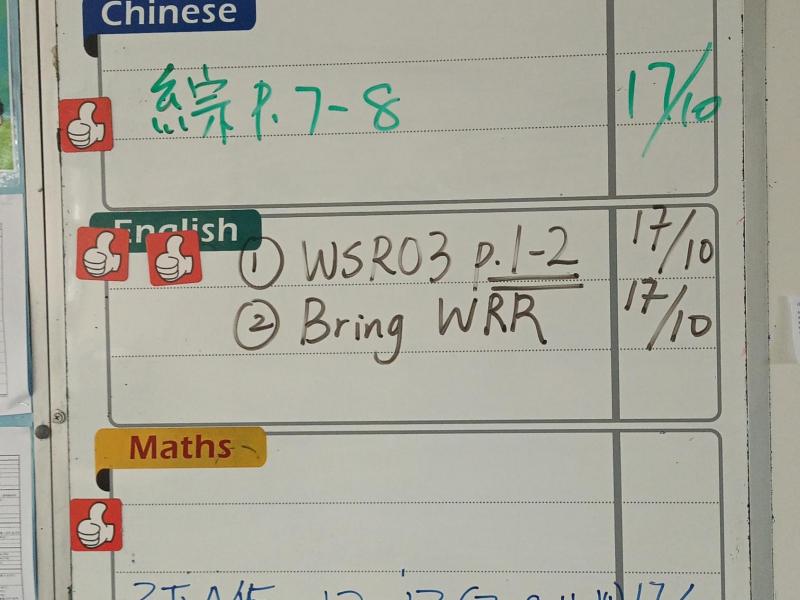 Chinese
綜 P. 7-8 17/10
English
① WSR03 p.1-2 17/10
② Bring WRR 17/10
Maths
17/